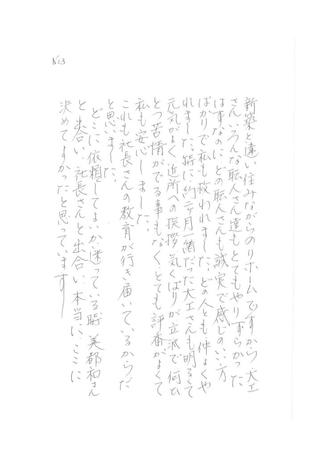 No3
新築と違い住みながらのリホームですから、大工
さん、いろんな職人さん達もとてもやりずらかった
はずなのに、どの職人さんも誠実で感じのいい方
ばかりで私も救われました。どの人とも仲よくや
れました。特に約二ヶ月一緒だった大工さんも明るくて
元気がよく近所への挨拶、気くばりが立派で何ひ
とつ苦情がでる事もなく、とても評番がよくて
私も安心しました。
これも社長さんの教育が行き届いているからだ
と思いました。
どこに依頼してよいか、迷っている時、美都和さん
と出合い、社長さんと出合い、本当に、ここに
決めてよかったと思っています